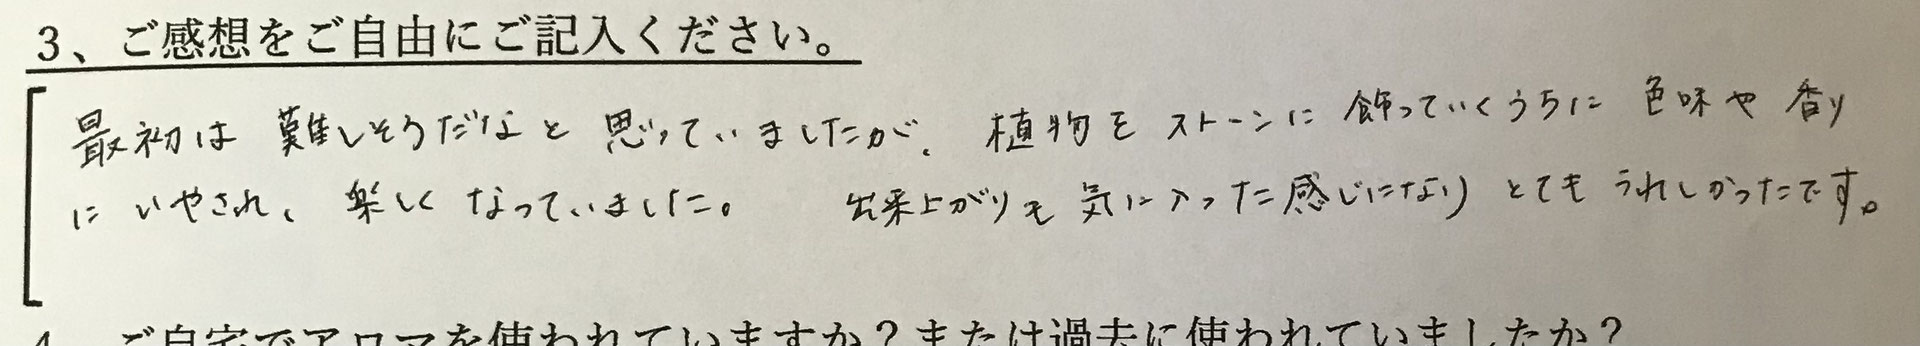 3、ご感想をご自由にご記入ください。
最初は難しそうだなと思っていましたが、植物をストーンに飾っていくうちに色味や香り
にいやされ、楽しくなっていました。 出来上がりも気に入った感じになりとてもうれしかったです。
4、ご自宅でアロマを使われていますか？または過去に使われていましたか？